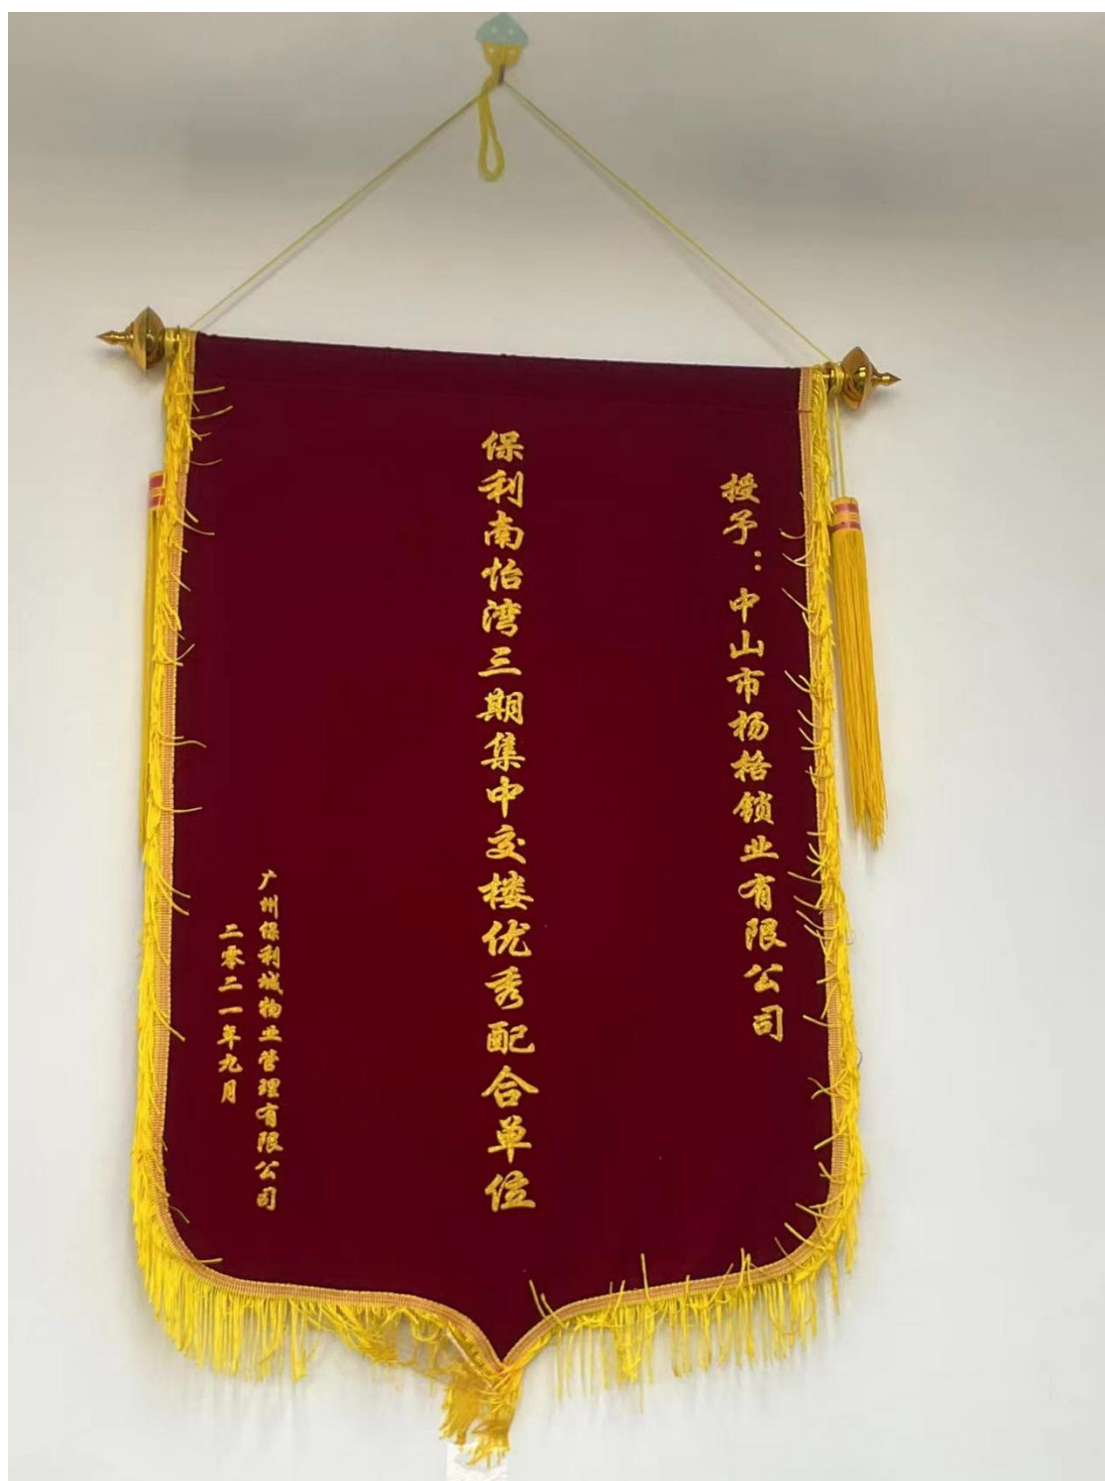 授予：中山市杨格锁业有限公司
保利南怡湾三期集中交楼优秀配合单位
广州保利城物业管理有限公司
二零二一年九月